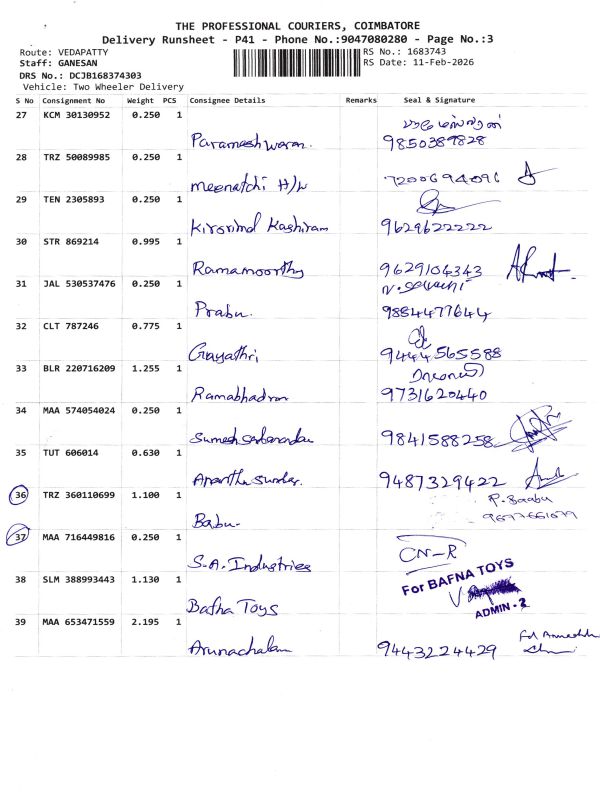 THE PROFESSIONAL COURIERS, COIMBATORE
Delivery Runsheet - P41 - Phone No.:9047080280 - Page No.:3
Route: VEDAPATTY
RS No.: 1683743
Staff: GANESAN
RS Date: 11-Feb-2026
DRS No.: DCJB168374303
Vehicle: Two Wheeler Delivery
S No Consignment No Weight PCS Consignee Details Remarks Seal & Signature
27 KCM 30130952 0.250 1
Parameshwaran. 9850389828
28 TRZ 50089985 0.250 1
meenatchi H/W 7200694091
29 TEN 2305893 0.250 1
Kirorimal Kashiram 9629622222
30 STR 869214 0.995 1
Ramamoorthy 9629104343
31 JAL 530537476 0.250 1 N. Selvachi
Prabu. 9884477644
32 CLT 787246 0.775 1
Gayathri 9444565588
33 BLR 220716209 1.255 1
Ramabhadran 9731620440
34 MAA 574054024 0.250 1
Sumesh 9841588258
35 TUT 606014 0.630 1
Anantha Sundar. 9487329422
36 TRZ 360110699 1.100 1 P. Baabu
Babu. 9677661677
37 MAA 716449816 0.250 1
S.A. Industries CN-R
38 SLM 388993443 1.130 1 For BAFNA TOYS
Bafna Toys ADMIN - 2
39 MAA 653471559 2.195 1
Arunachalam 9443224429